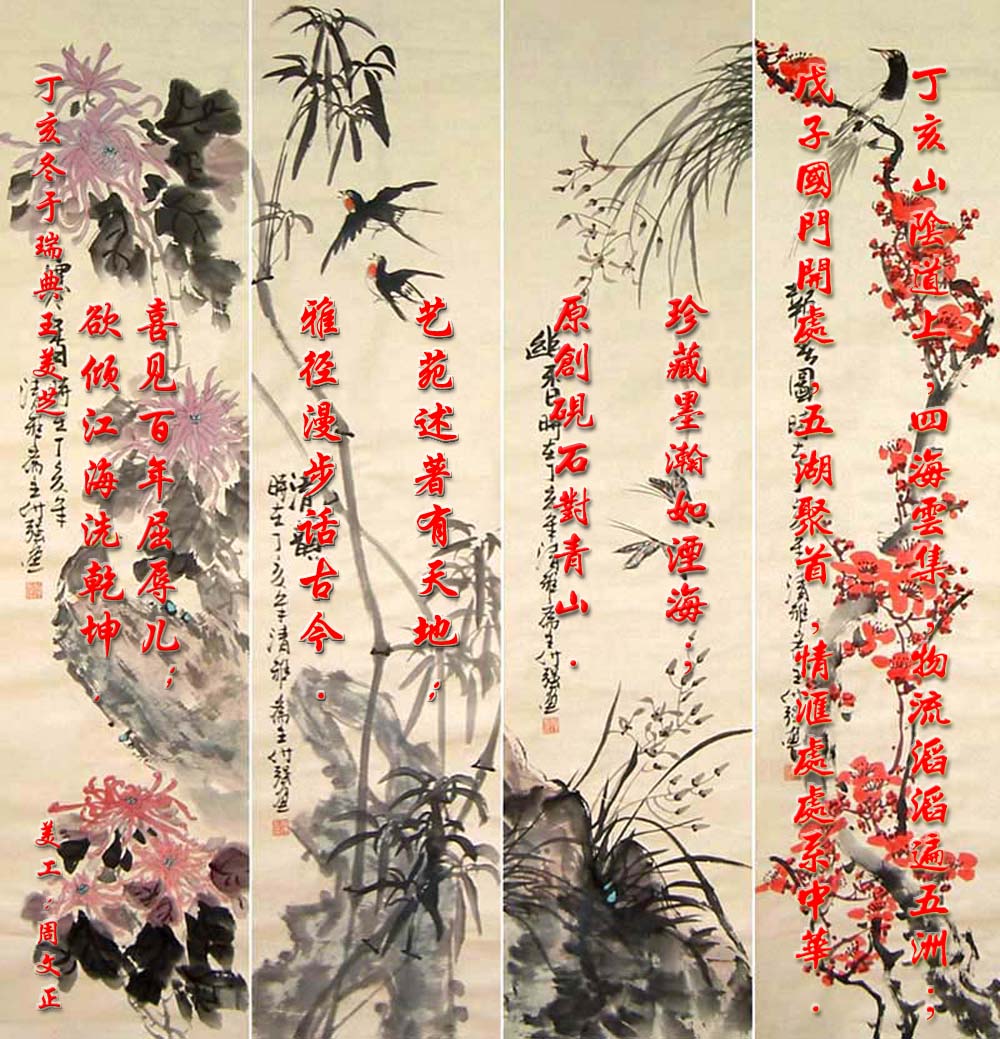 丁亥山陰道上,四海雲集,物流滔滔遍五洲;
戊子國門開處,五湖聚首,情滙處處系中華.
珍藏墨瀚如湮海;
原創硯石對青山.
艺苑述著有天地;
雅径漫步话古今.
喜见百年屈辱儿;
欲倾江海洗乾坤.
丁亥冬于瑞典王美芝
美工:周文正
清韻
時在丁亥年清雅齋主付强画